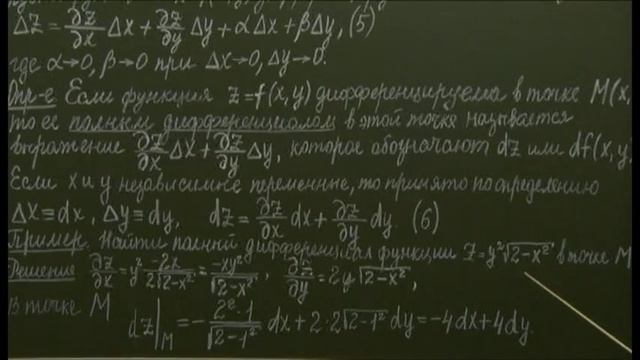 ΔZ = ∂z/∂x Δx + ∂z/∂y Δy + αΔx + βΔy, (5)
где α→0, β→0 при Δx→0, Δy→0.
Опр-е Если функция z=f(x,y) дифференцируема в точке M(x,
то её полным дифференциалом в этой точке называется
выражение ∂z/∂x Δx + ∂z/∂y Δy, которое обозначают dz или df(x,y
Если x и y независимые переменные, то принято по определению
Δx≡dx, Δy≡dy, dz = ∂z/∂x dx + ∂z/∂y dy. (6)
Пример. Найти полный дифференциал функции z=y²√(2-x²) в точке M
Решение ∂z/∂x = y² (-2x)/(2√(2-x²)) = -xy²/√(2-x²), ∂z/∂y = 2y√(2-x²),
В точке M
dz|_M = -(2²·1)/√(2-1²) dx + 2·2√(2-1²) dy = -4dx+4dy.